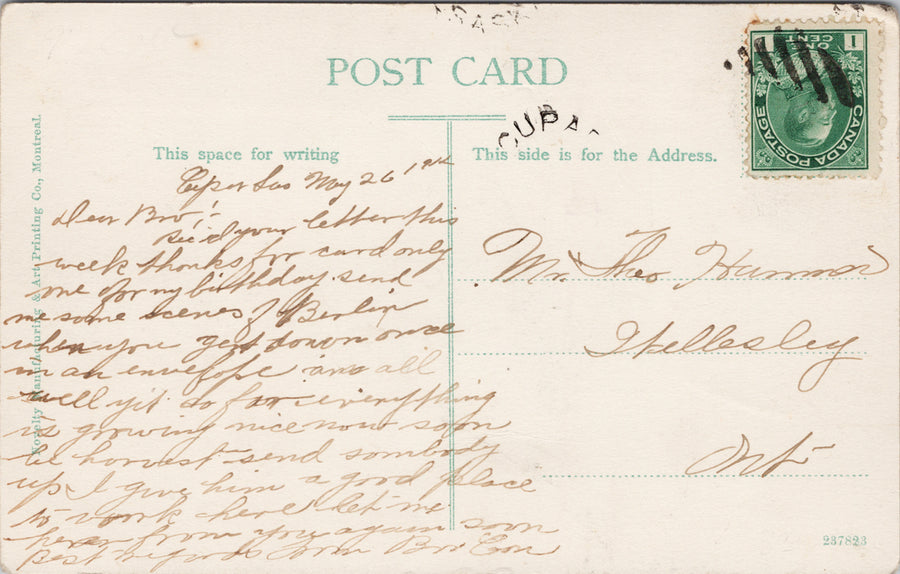 POST CARD
CUPA
This space for writing
This side is for the Address.
ONE CENT
1
CANADA POSTAGE
Novelty Manufacturing & Art Printing Co., Montreal.
May 26
Dear Bro:-
Rec'd your letter this
week thanks for card only
one for my birthday. send
me some scenes of Berlin
when you get down once
in an envelope am all
well yit so far. everything
is growing nice now soon
be horvest send sombody
up I give him a good place
to work here let me
hear from you again soon
Best regards from Bro
Mr. Theo
Wellesley
Ont
237823